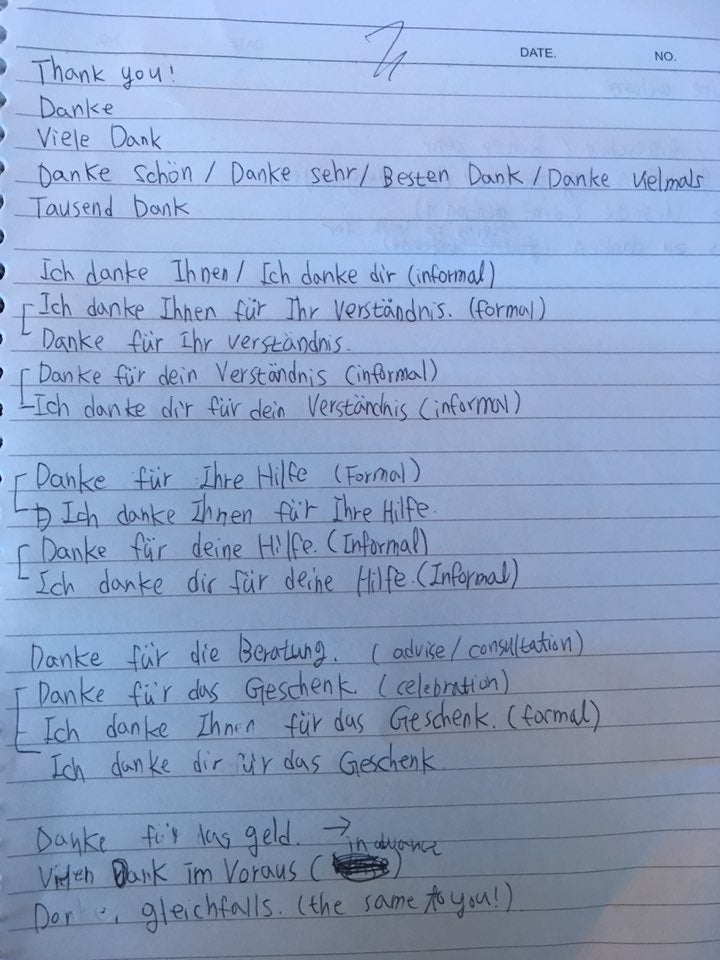 DATE. NO.
Thank you!
Danke
Viele Dank
Danke schön / Danke sehr / Besten Dank / Danke vielmals
Tausend Dank
Ich danke Ihnen / Ich danke dir (informal)
Ich danke Ihnen für Ihr Verständnis. (formal)
Danke für Ihr verständnis.
Danke für dein Verständnis (informal)
Ich danke dir für dein Verständnis (informal)
Danke für Ihre Hilfe (Formal)
Ich danke Ihnen für Ihre Hilfe.
Danke für deine Hilfe. (Informal)
Ich danke dir für deine Hilfe. (Informal)
Danke für die Beratung. (advise / consultation)
Danke für das Geschenk. (celebration)
Ich danke Ihnen für das Geschenk. (formal)
Ich danke dir für das Geschenk.
Danke für das geld. →
in advance
Vielen Dank im Voraus ( )
Danke, gleichfalls. (the same to you!)